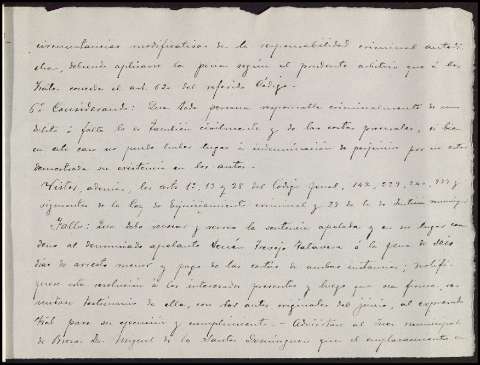 circunstancias modificativas de la responsabilidad criminal antedi-
cha, debiendo aplicarse la pena según el prudente arbitrio que á los
concede el art. 620 del referido Código.-
6º Considerando: Que toda persona responsable criminalmente de un
delito ó falta lo es también civilmente y de las costas procesales, si bien
en este caso no puede haber lugar á indemnización de perjuicios por no estar
demostrada su existencia en los autos.-
Vistos, además, los arts 1º, 13 y 28 del Código penal, 142, 239, 240,
siguientes de la ley de Enjuiciamiento criminal y 29 de la de Justicia municipal
Fallo: Que debo revocar y revoco la sentencia apelada y en su lugar con-
deno al denunciado apelante Trevejo Talavera á la pena de seis
días de arresto menor y pago de las costas de ambas instancias; notifí-
quese esta resolución á los interesados presentes y luego que sea firme, re-
mítase testimonio de ella, con los autos originales del juicio, al expresado
para su ejecución y cumplimiento.- al Juez municipal
de Dn. Miguel de los Santos Domínguez que el emplazamiento en